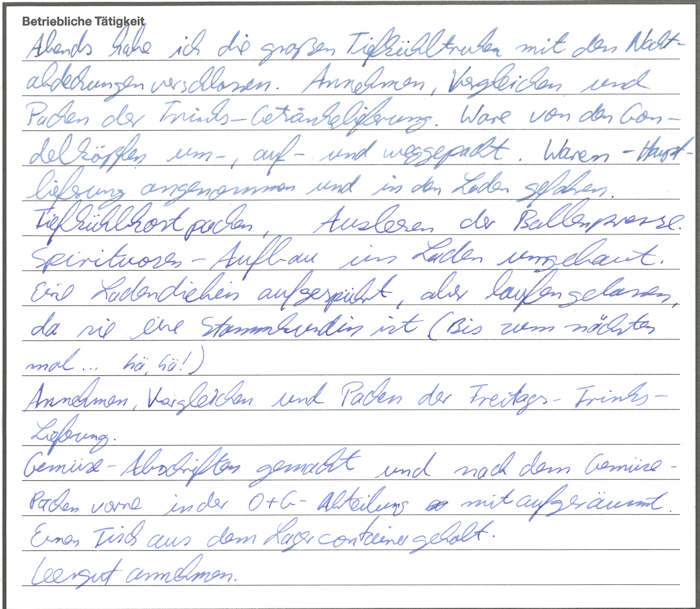 Betriebliche Tätigkeit
Abends habe ich die großen Tiefkühltruhen mit den Nacht-
abdeckungen verschlossen. Annehmen, Vergleichen und
Packen der Trinks-Getränkelieferung. Ware von den Gon-
delköpfen um-, auf- und weggepackt. Waren-Haupt-
lieferung angenommen und in den Laden gefahren.
Tiefkühlkost packen, Ausleeren der Ballenpresse.
Spirituosen-Aufbau im Laden umgebaut.
Eine Ladendiebin aufgespührt, aber laufen gelassen,
da sie eine Stammkundin ist (Bis zum nächsten
mal... hä, hä!)
Annehmen, Vergleichen und Packen der Freitags-Trinks-
Lieferung.
Gemüse-Abschriften gemacht und nach dem Gemüse-
Packen vorne in der O+G-Abteilung mit aufgeräumt.
Einen Tisch aus dem Lagercontainer geholt.
Leergut annehmen.